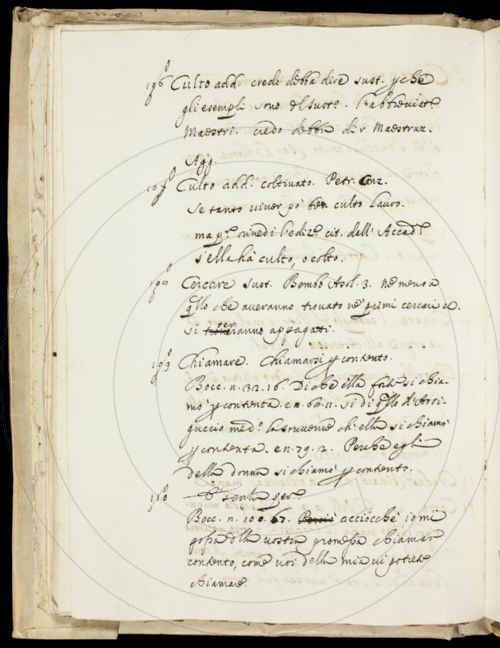 Culto add. credo debba dire sust. pche
gli esempi sono d'sust. l'abbreviat.
Maestri. credo debba dir Maestruz.
Agg.
Culto add. coltivato. Petr. Canz.
se tanto viver può ben culto Lauro.
ma rivedi l'ediz. cit. dall' Accad.
s'ella ha culto, o colto.
Cercare sust. Bembo Asol. 3. ne meno a
qllo che averanno trovato ne primi cercari
si appagati.
Chiamare. Chiamarsi p contento.
Bocc. n. 32. 16. Di che ella si chia-
mò p contenta. e n. 60. 11. si di qllo d'Arri-
guccio med.o che ella si chiamò
p contenta. e n. 79. 2. Perche egli
della donna si chiamò p contento.
senza per
Bocc. n. 100. 67. acciocchè io mi
possa della vostra promessa chiamar
contento, come voi della mia vi potrete
chiamare.